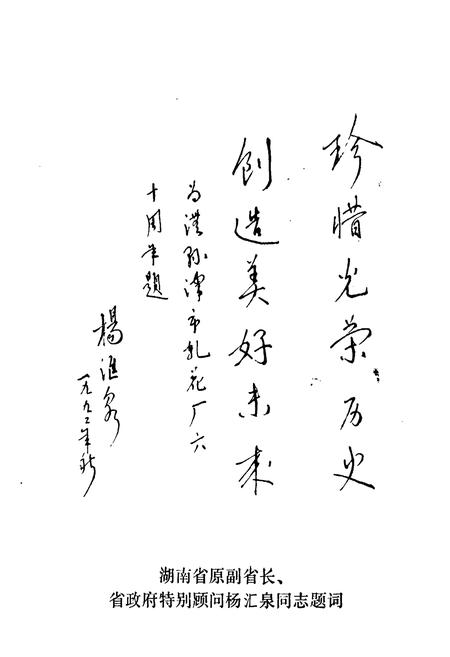 珍惜光荣历史
创造美好未来
为津市轧花厂六
十周年题
楊汇泉
一九九二年秋
湖南省原副省长、
省政府特别顾问杨汇泉同志题词